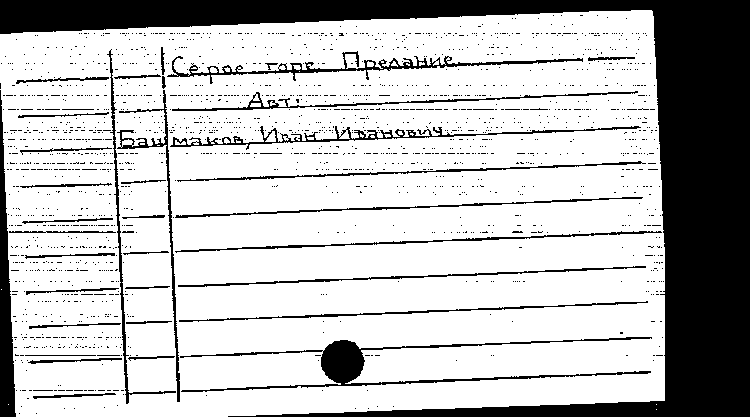 Серое горе. Предание.
Авт.:
Башмаков, Иван Иванович.